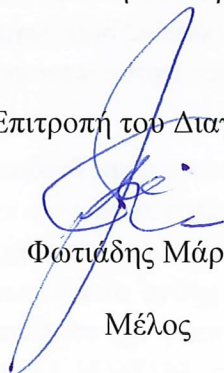 Επιτροπή του Δια
Φωτιάδης Μάρ
Μέλος